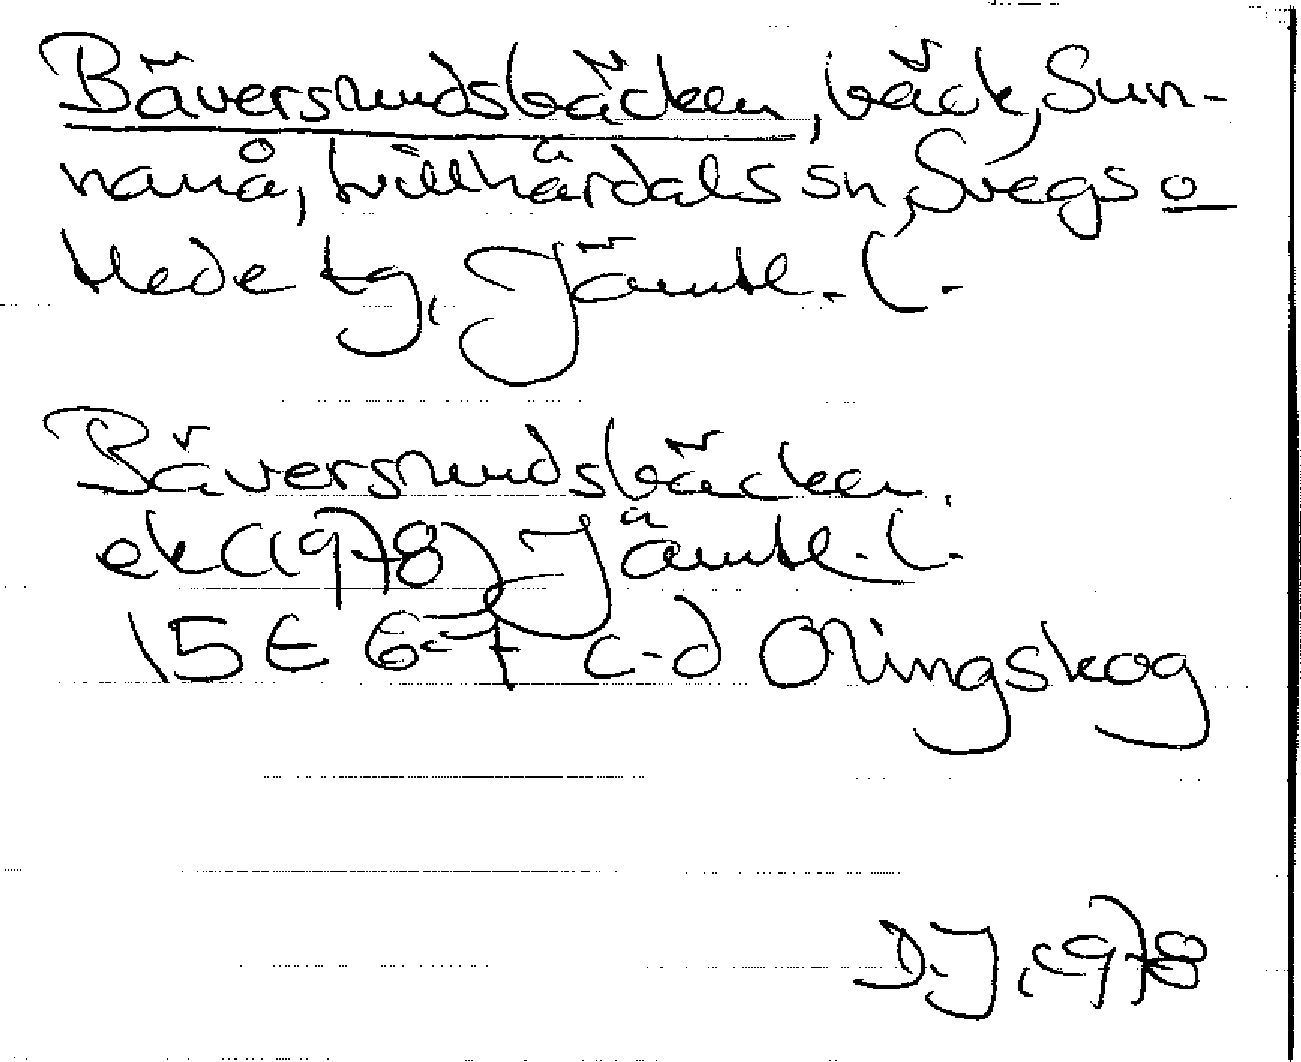 Bäversundsbäcken, bäck, Sun-
nanå, Lillhärdals sn, Svegs o
Hede tg, Jämtl. l.
Bäversundsbäcken
ek (1978) Jämtl. l.
15E 6-7 c-d Olingskog
D.J. 1978